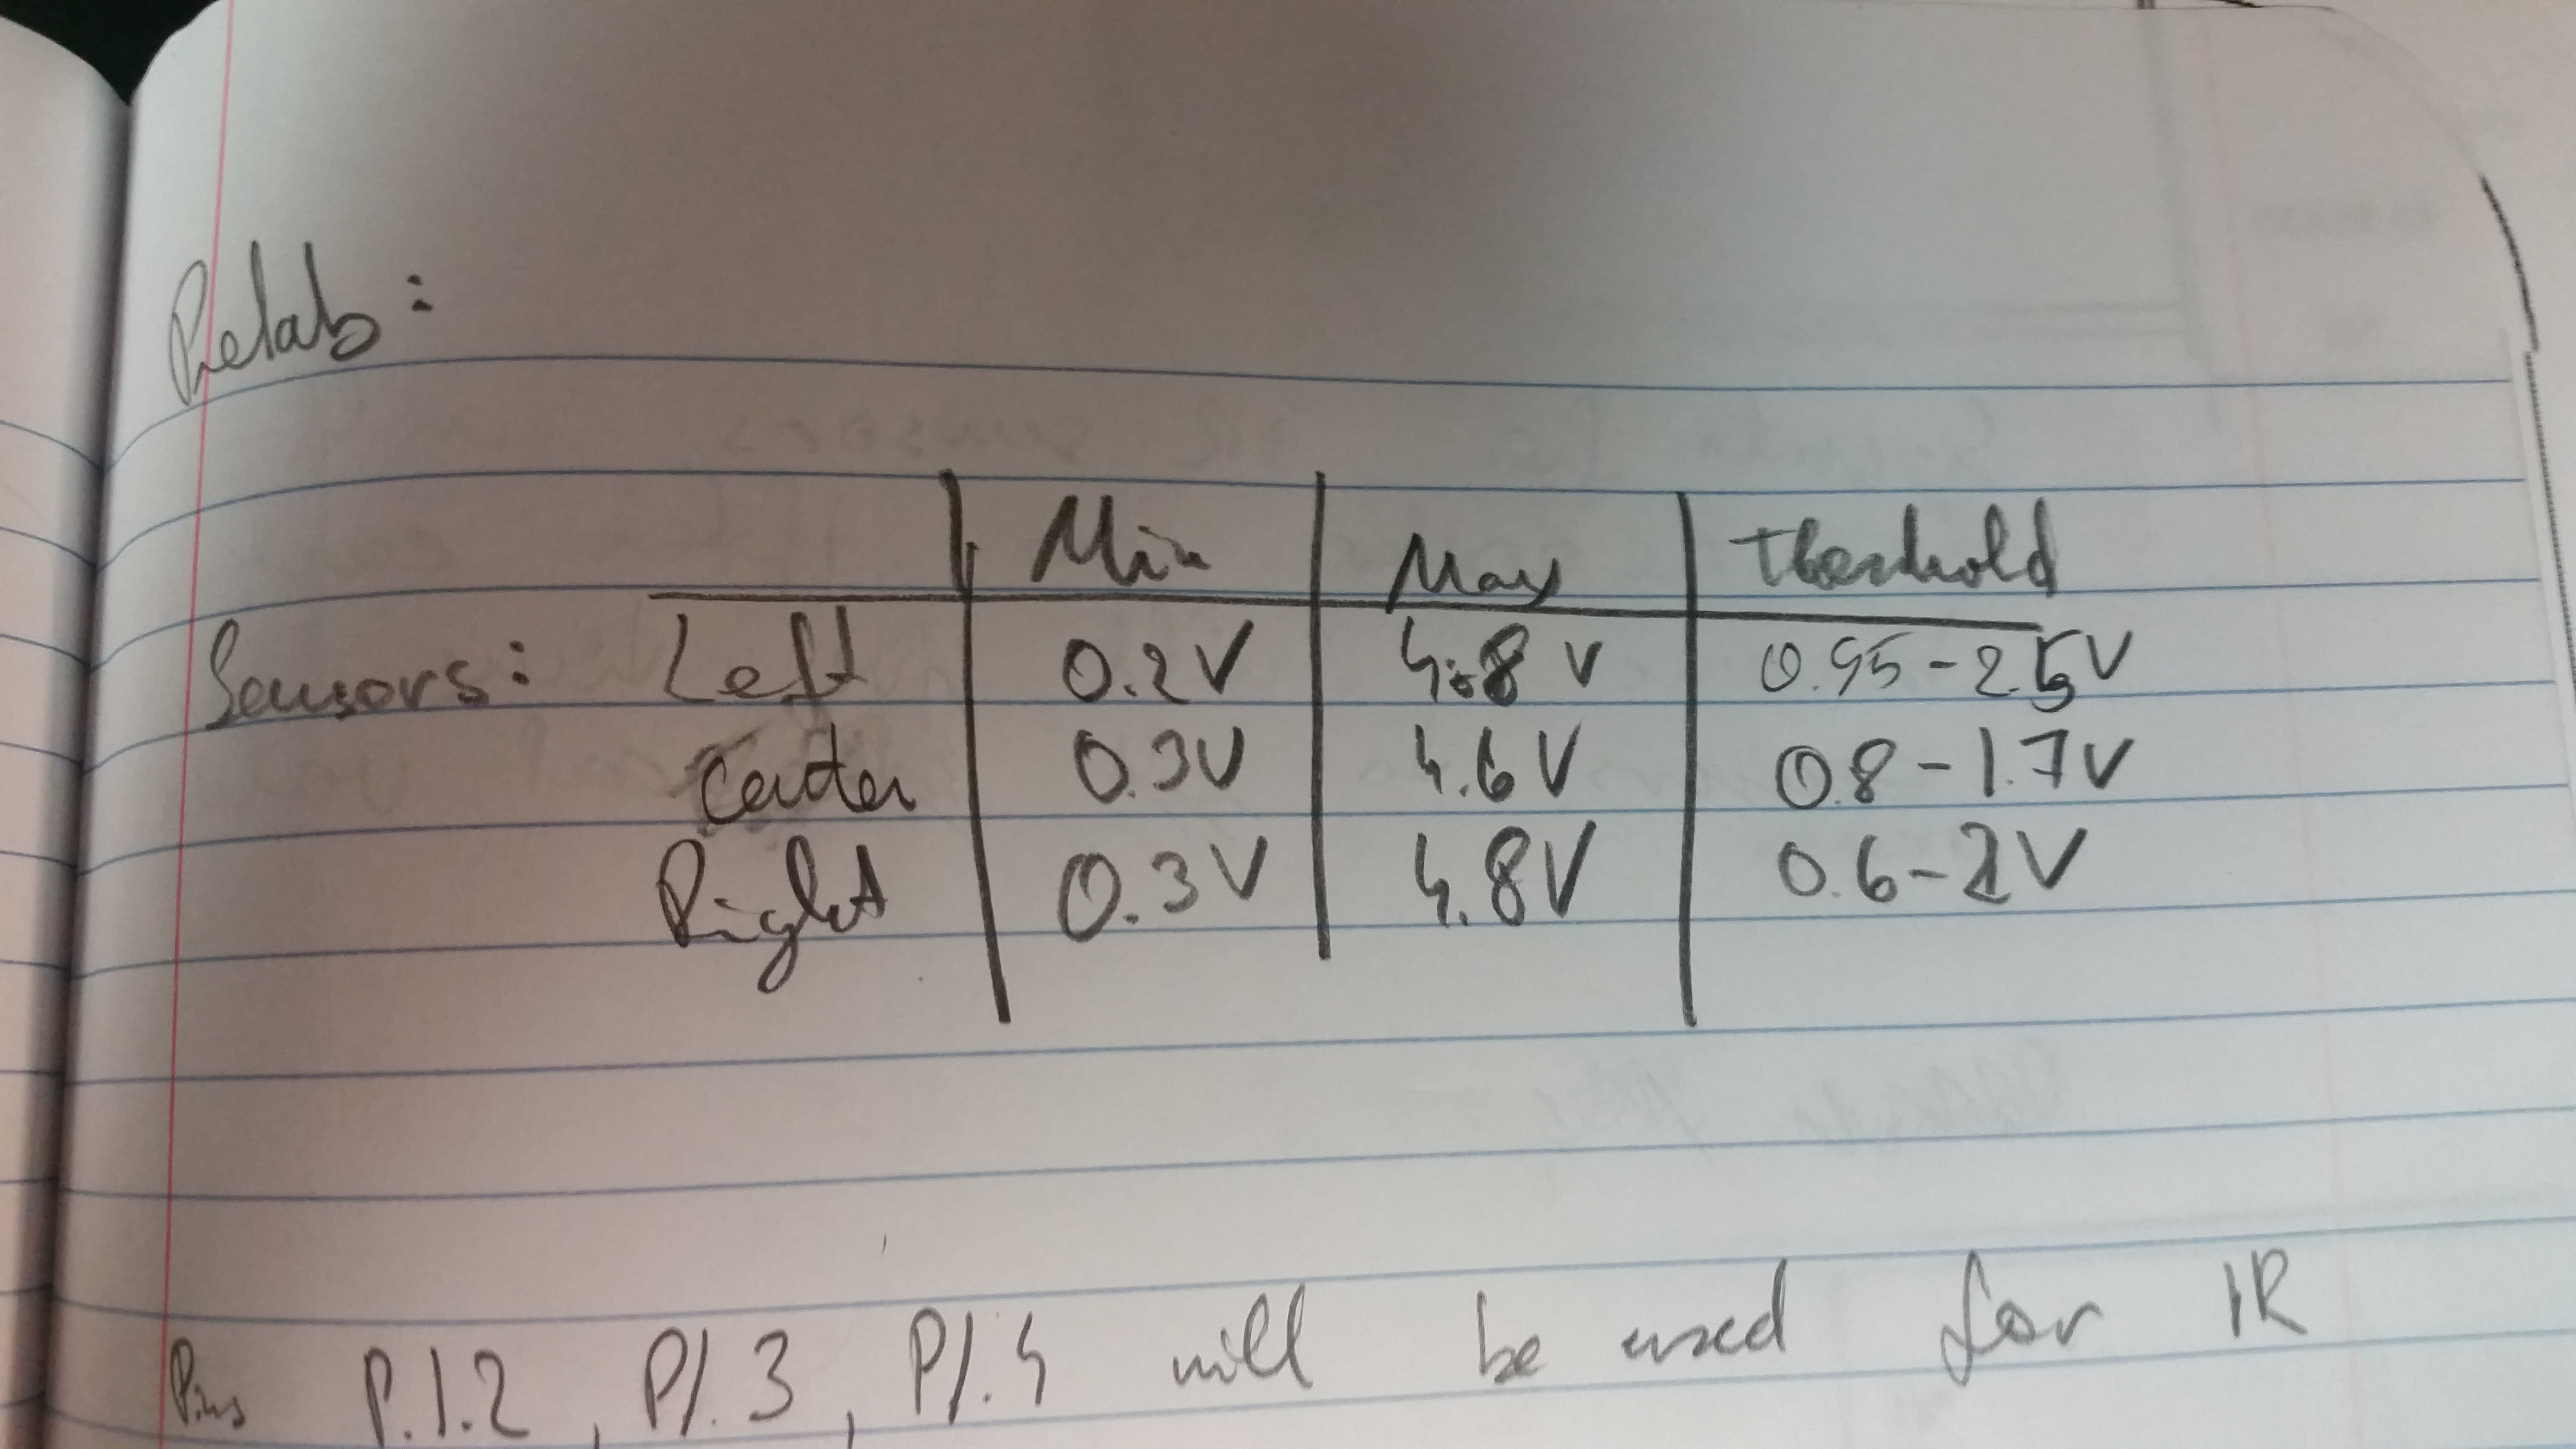 Prelab:
Min Max Threshold
Sensors: Left 0.2V 4.8V 0.95-2.5V
Center 0.3V 4.6V 0.8-1.7V
Right 0.3V 4.8V 0.6-2V
Pins P.1.2, P1.3, P1.4 will be used for IR